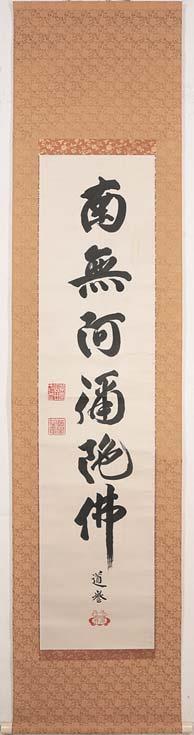 南無阿彌陀佛
道誉